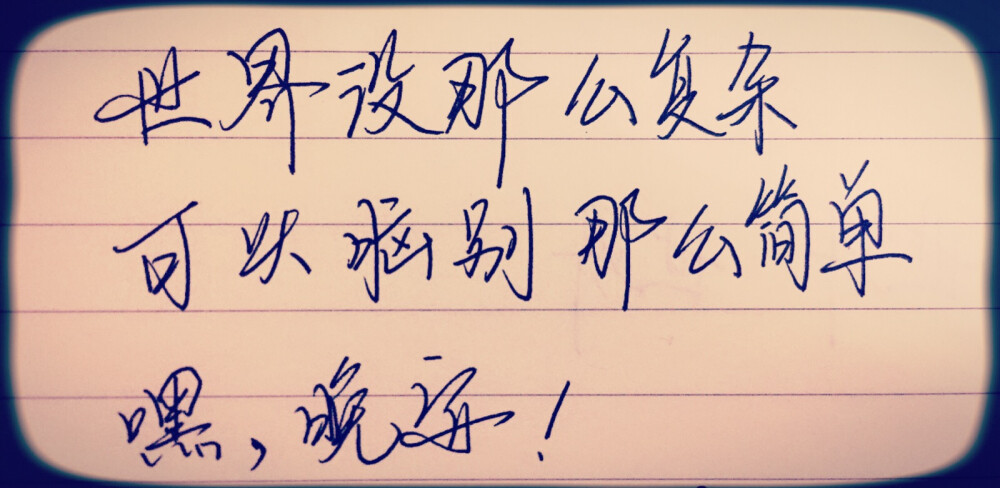 世界没那么复杂
可头脑别那么简单
嘿,晚安!